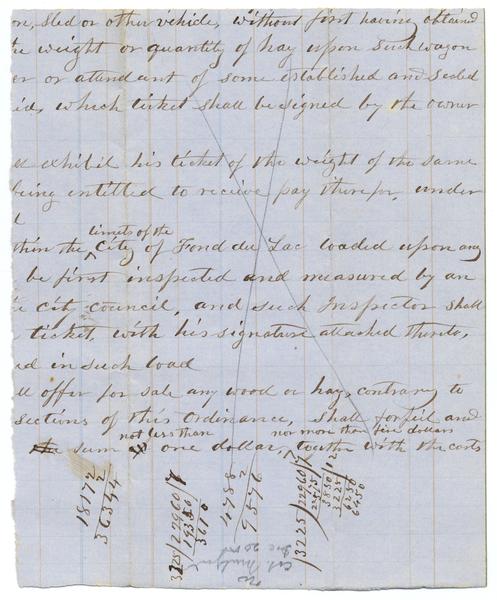 on, sled or other vehicle, without first having obtained
the weight or quantity of hay upon such wagon
er or attendant of some established and sealed
id, which ticket shall be signed by the owner
exhibit his ticket of the weight of the same
being entitled to receive pay therefor, under
limits of the
thin the ^ City of Fond du Lac loaded upon any
be first inspected and measured by an
city council, and such Inspector shall
ticket, with his signature attached thereto,
in such load
ll offer for sale any wood or hay, contrary to
sections of this Ordinance, shall forfeit and
not less than nor more than five dollars
the sum one dollar, together with the costs
18172
2
36344
3225/22960/7
3610
4788
2
9576
3225/22960/7
22575
3850
3225
6250
6450